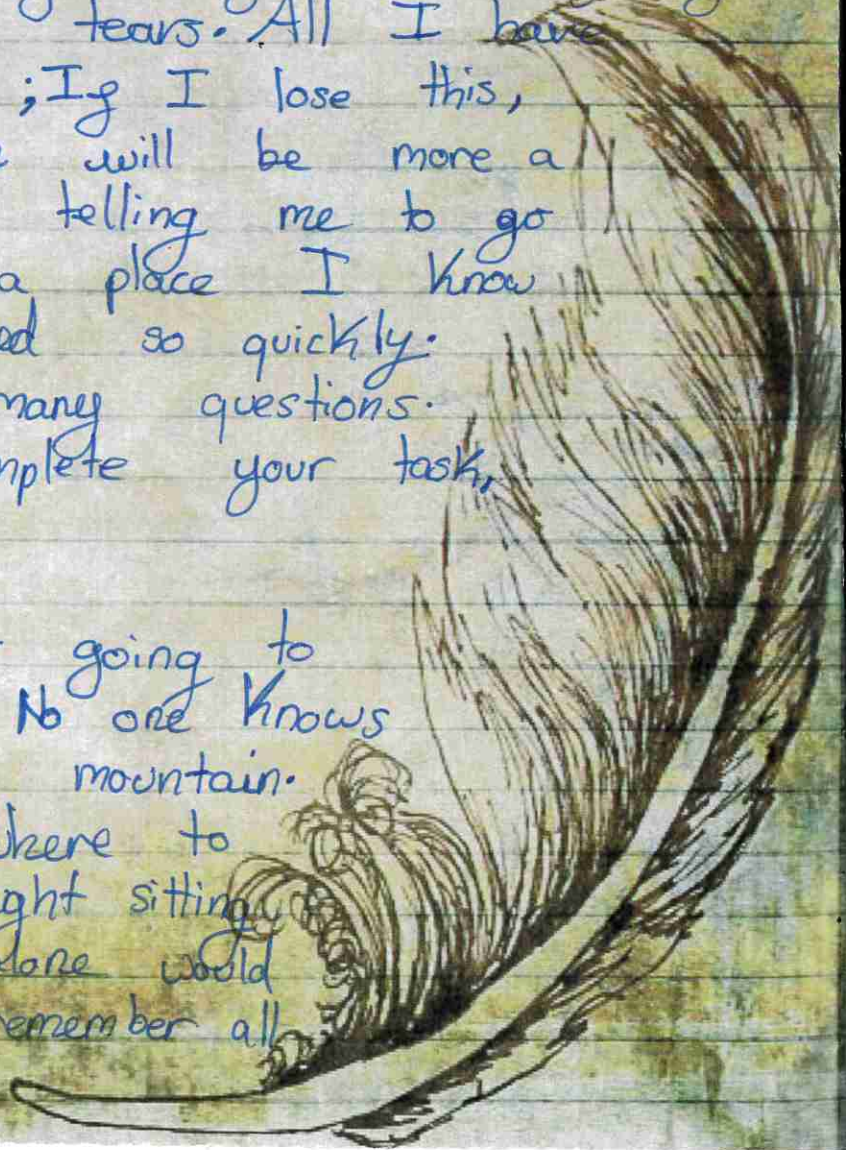 tears. All I have
;If I lose this,
will be more a
telling me to go
a place I Know
ed so quickly.
many questions.
mplete your task,
going to
No one Knows
mountain.
where to
ght sitting
lone would
emember all